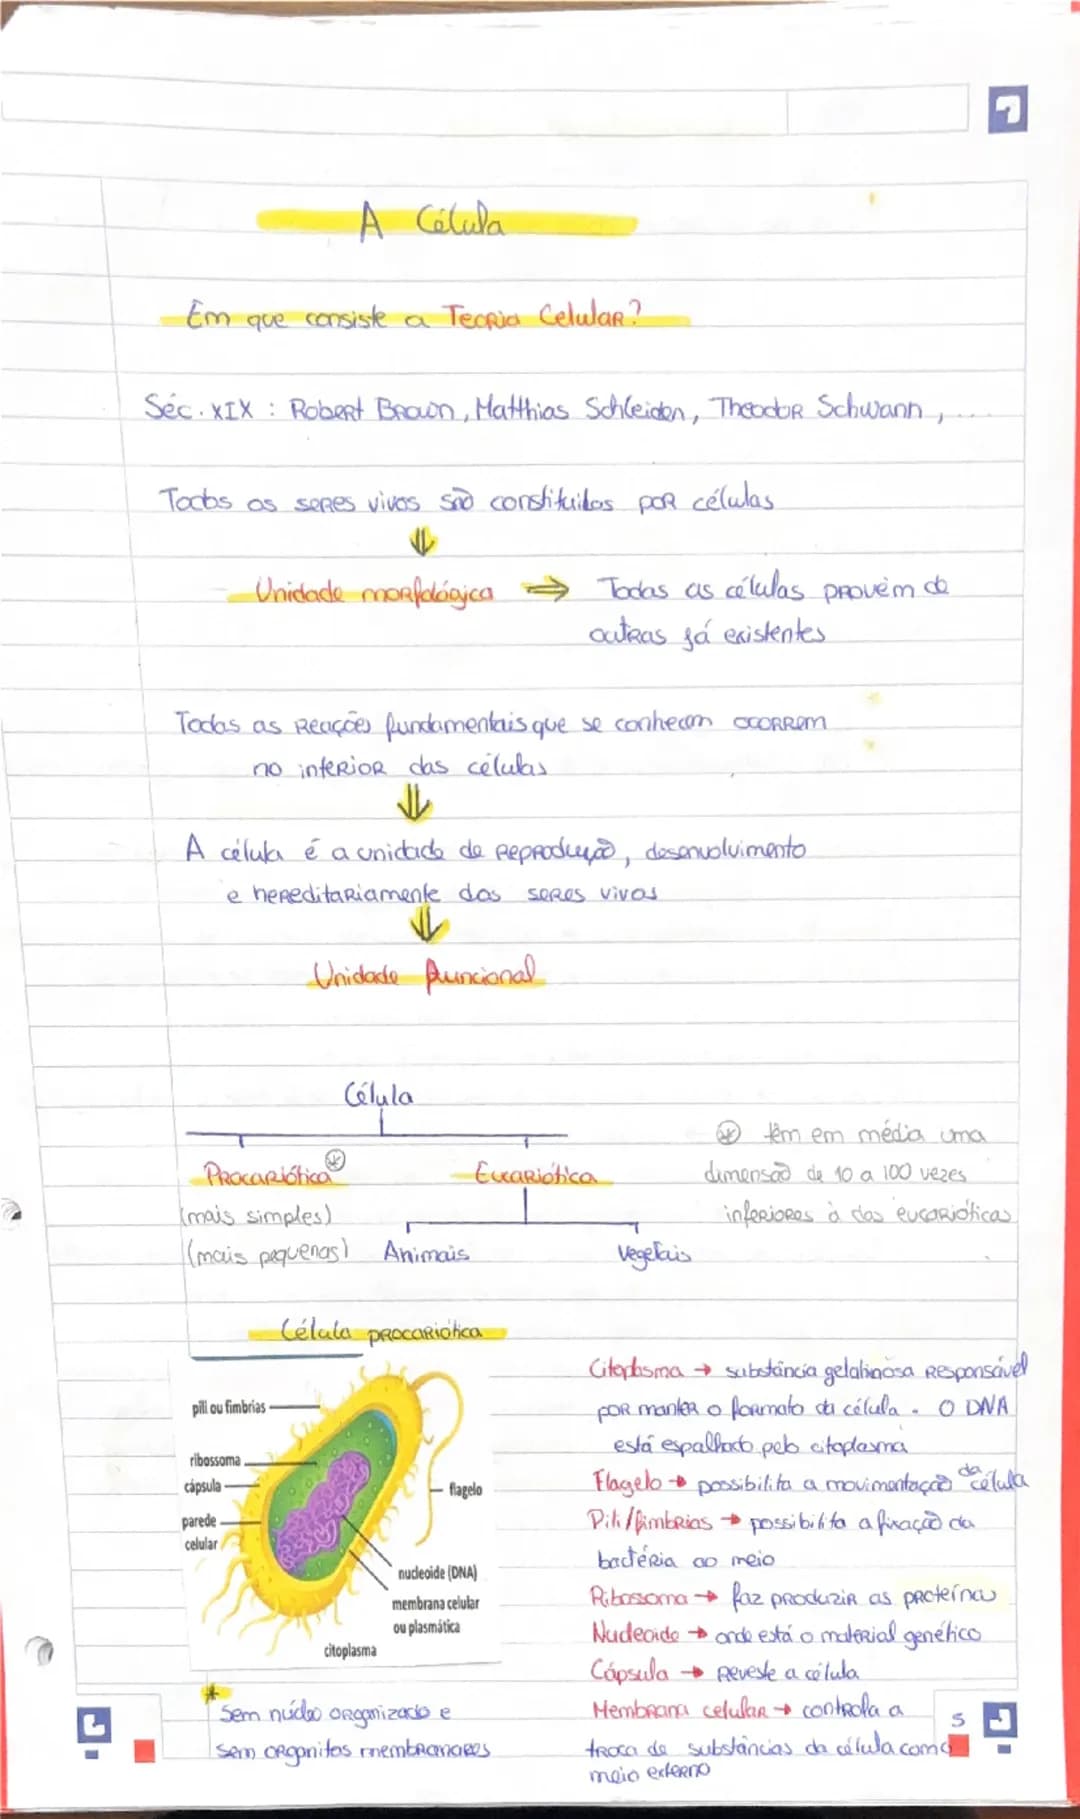 A Célula
Em que consiste a Teoria Celular?
Séc. XIX : Robert Brown, Matthias Schleiden, Theodor Schwann, ...
Todos os seres vivos são constituidos por células
Unidade morfológica ⇒ Todas as células provêm de
outras já existentes
Todas as Reações fundamentais que se conhecem ocorrem
no interior das células
A célula é a unidade de Reprodução, desenvolvimento
e hereditariamente dos seres vivos
Unidade funcional
Célula
Procariótica Eucariótica
(mais simples)
(mais pequenas) Animais Vegetais
têm em média uma
dimensão de 10 a 100 vezes
inferiores à das eucarióticas
Célula procariótica
pili ou fimbrias
ribossoma
cápsula
parede
celular
flagelo
nucleoide (DNA)
membrana celular
ou plasmática
citoplasma
* Sem núcleo organizado e
sem organitos membranares
Citoplasma → substância gelatinosa Responsável
por manter o formato da célula. O DNA
está espalhado pelo citoplasma
Flagelo → possibilita a movimentação da célula
Pili/fimbrias → possibilita a fixação da
bactéria ao meio
Ribossoma → faz produzir as proteínas
Nucleoide → onde está o material genético
Cápsula → Reveste a célula
Membrana celular → controla a
troca de substâncias da célula com o
meio externo
5